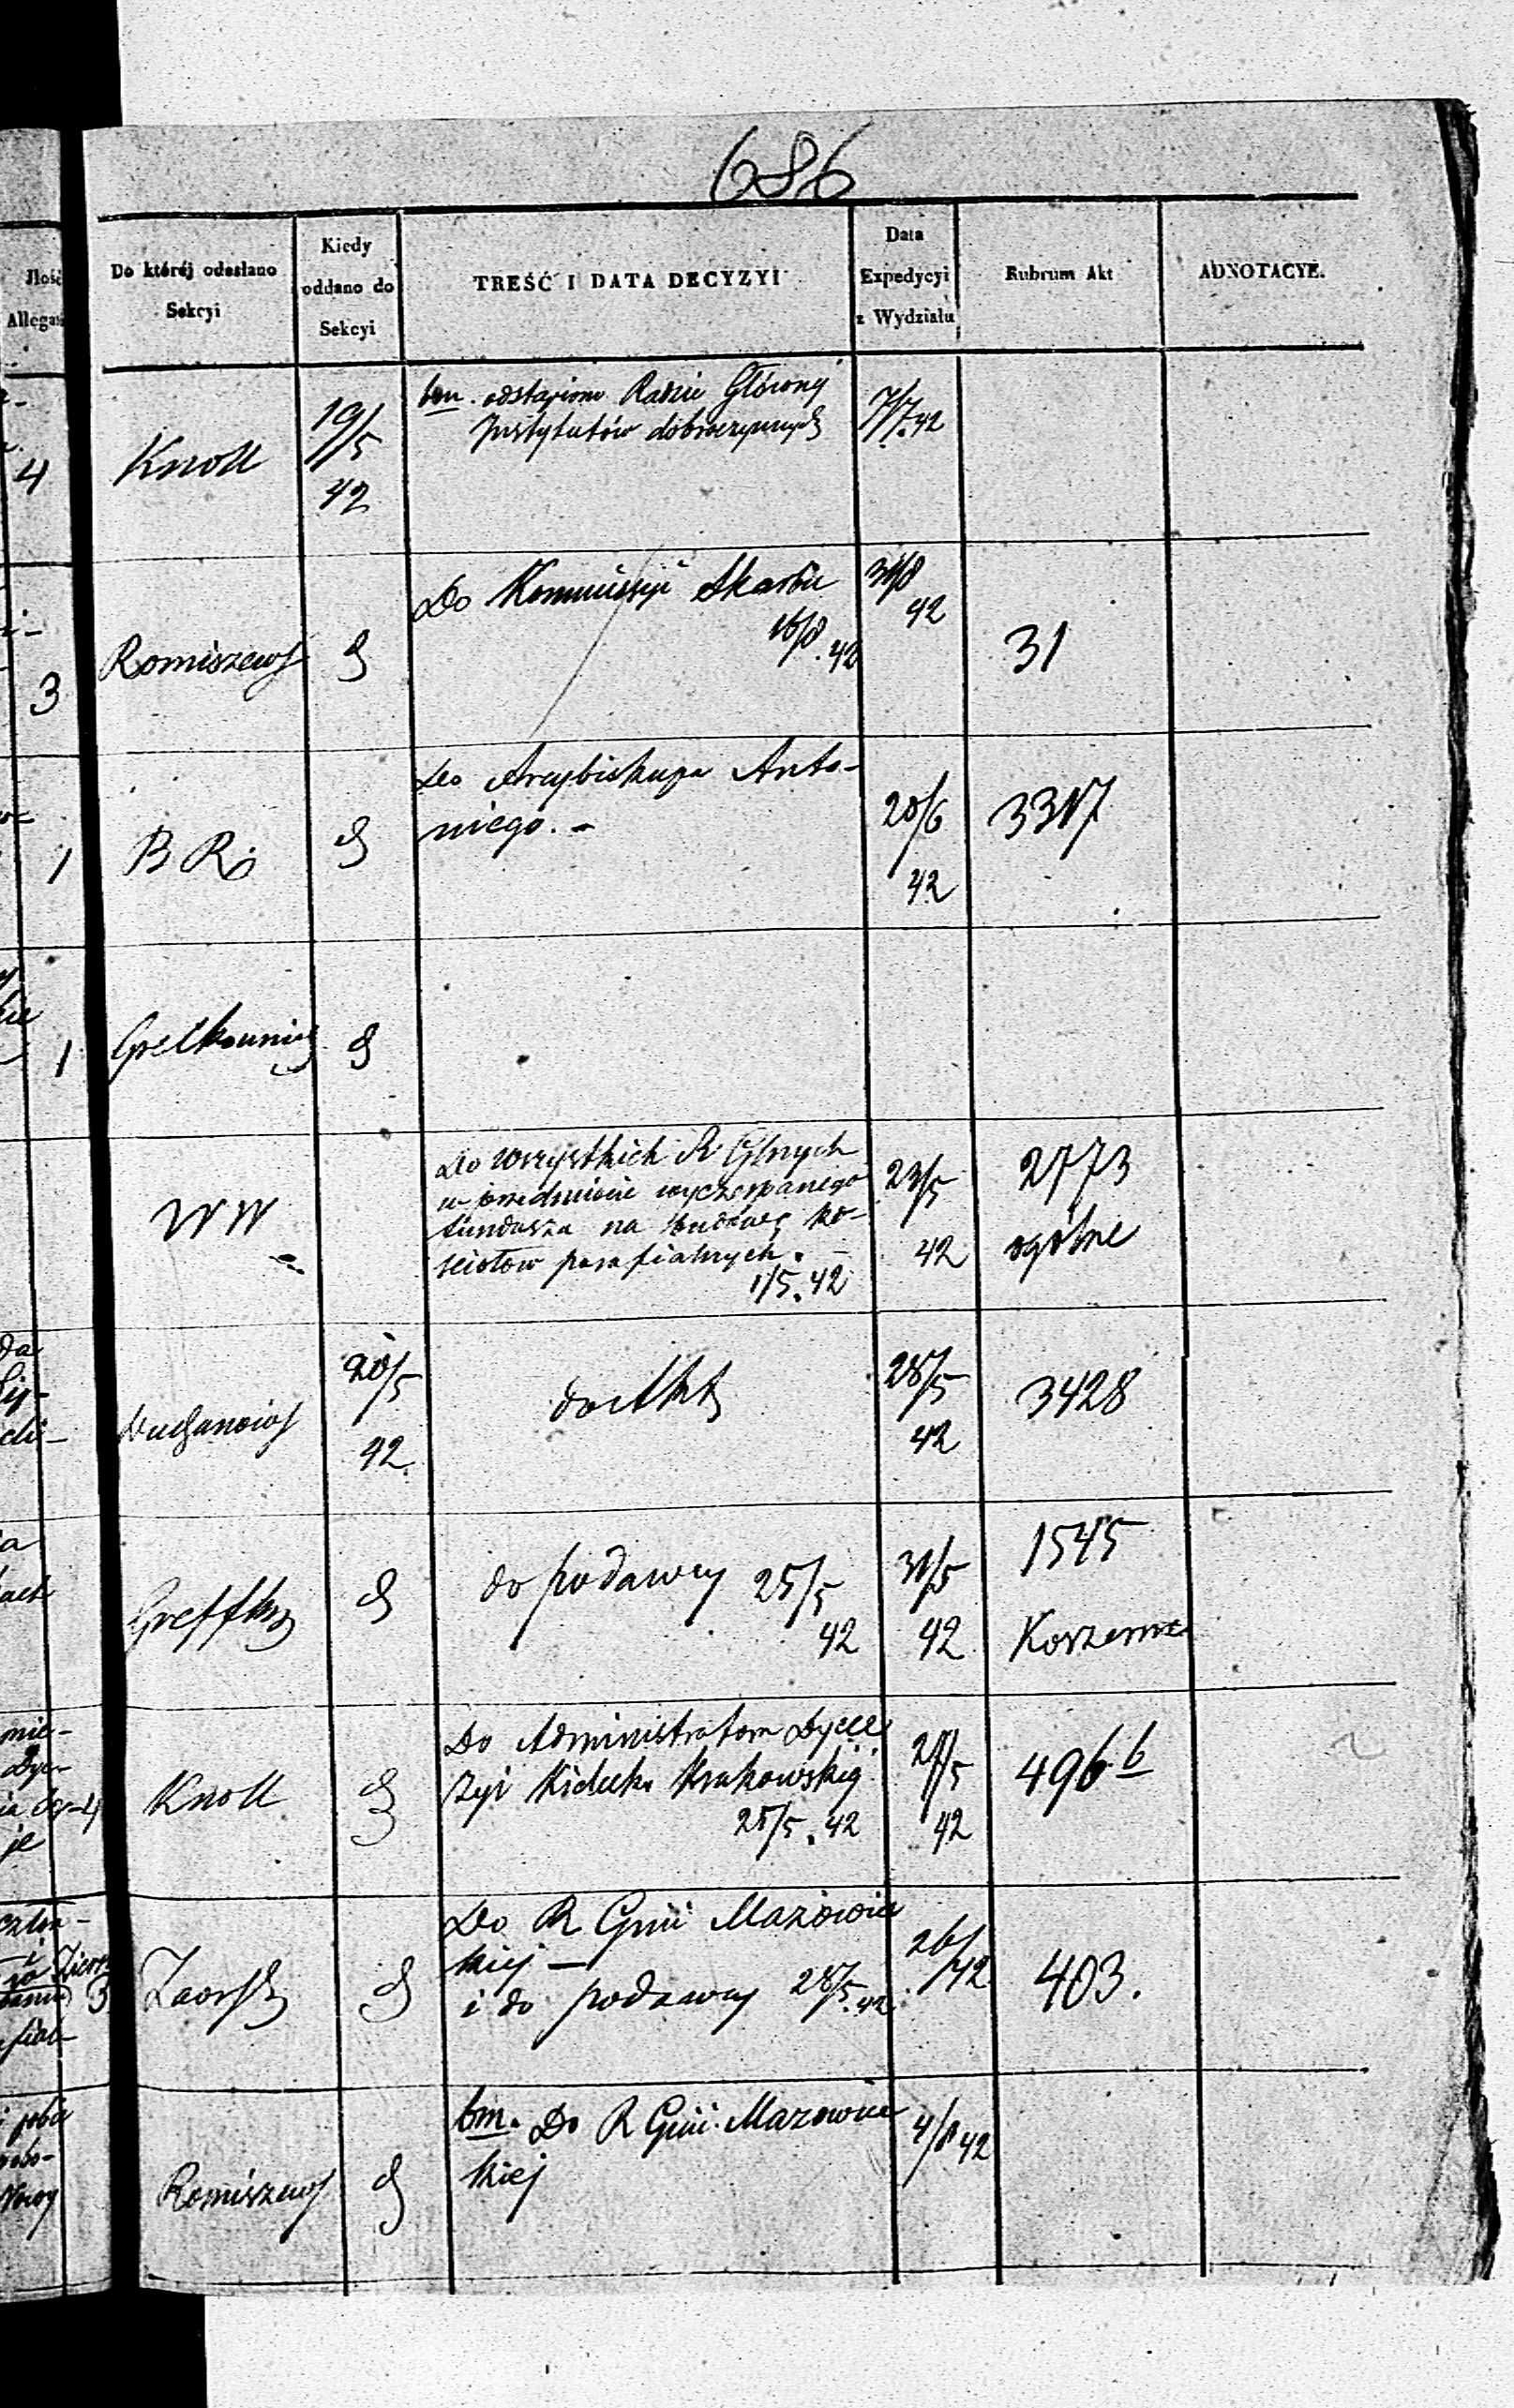 686
Jlość
Allegat
Do któréj odesłano
Sekcyi
Kiedy
oddano do
Sekcyi
TREŚĆ I DATA DECYZYI
Data
Expedycyi
z Wydziału
Rubrum Akt
ADNOTACYE.
4
Knoll
19/5
42
bm. odstąpiono Radzie Głównej
Instytutów dobroczynnych
7/7.42
3
Romiszews
Do Kommissyi Skarbu
16/8.42
31/8
42
31
1
B R
Do Arcybiskupa Anto-
niego. -
20/6
42
3317
1
WW
Do wszystkich R Głnych
w przedmiocie wyczerpanego
funduszu na budowę ko-
sciołow parafialnych. -
1/5.42
23/5
42
2773
ogólne
20/5
42
do Akt
28/5
42
3428
do podawcy 25/5
42
31/5
42
1545
Knoll
Do Administratora Dyece
zyi Kielecko Krakowskiej
25/5.42
27/5
42
496 b
3
Zaorsk
Do R Gnii Mazowie
kiej —
i do podawcy 28/5.42
403.
Romiszews
bm. Do R Gnii Mazowie
kiej
4/8 42